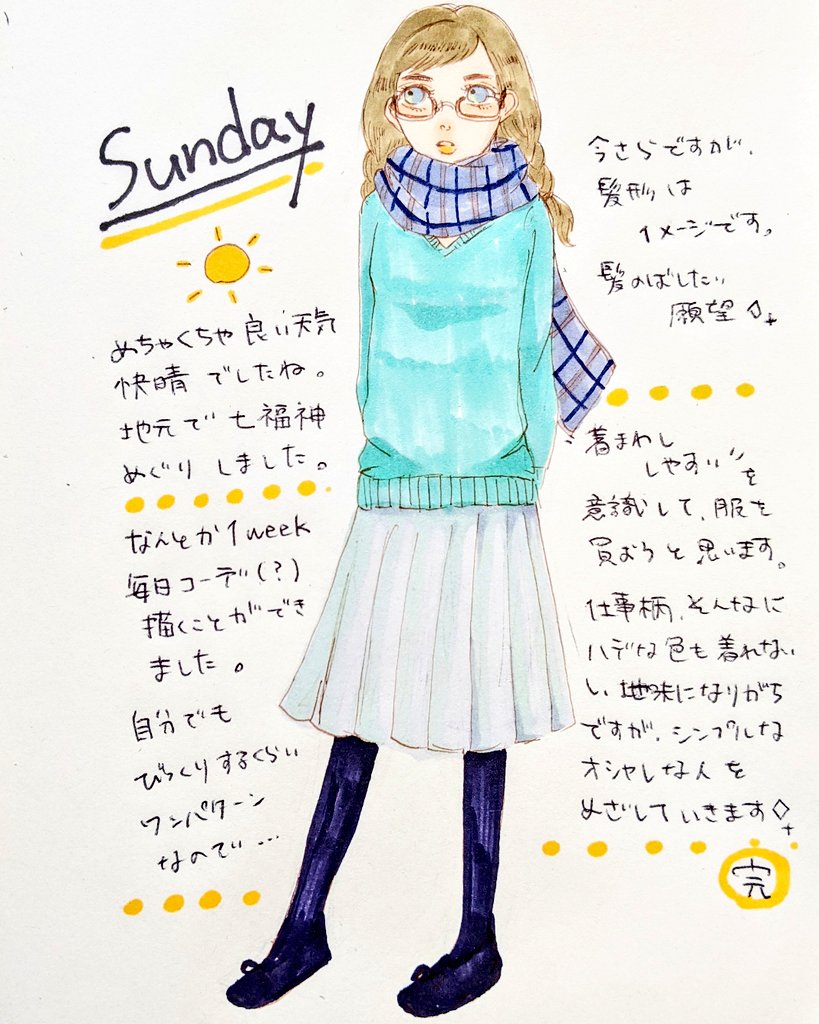 Sunday
めちゃくちゃ良い天気
快晴でしたね。
地元で七福神
めぐりしました。
なんとか1week
毎日コーデ(?)
描くことができ
ました。
自分でも
びっくりするくらい
ワンパターン
なので…
今さらですが、
髪形は
イメージです。
髪のばしたい
願望
着まわし
しやすいを
意識して、服を
買おうと思います。
仕事柄、そんなに
ハデな色も着れない
し、地味になりがち
ですが、シンプルな
オシャレな人を
めざしていきます
完